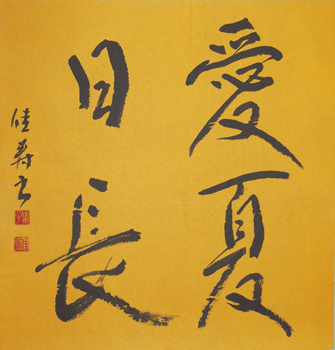 愛夏
日長
佳寿書